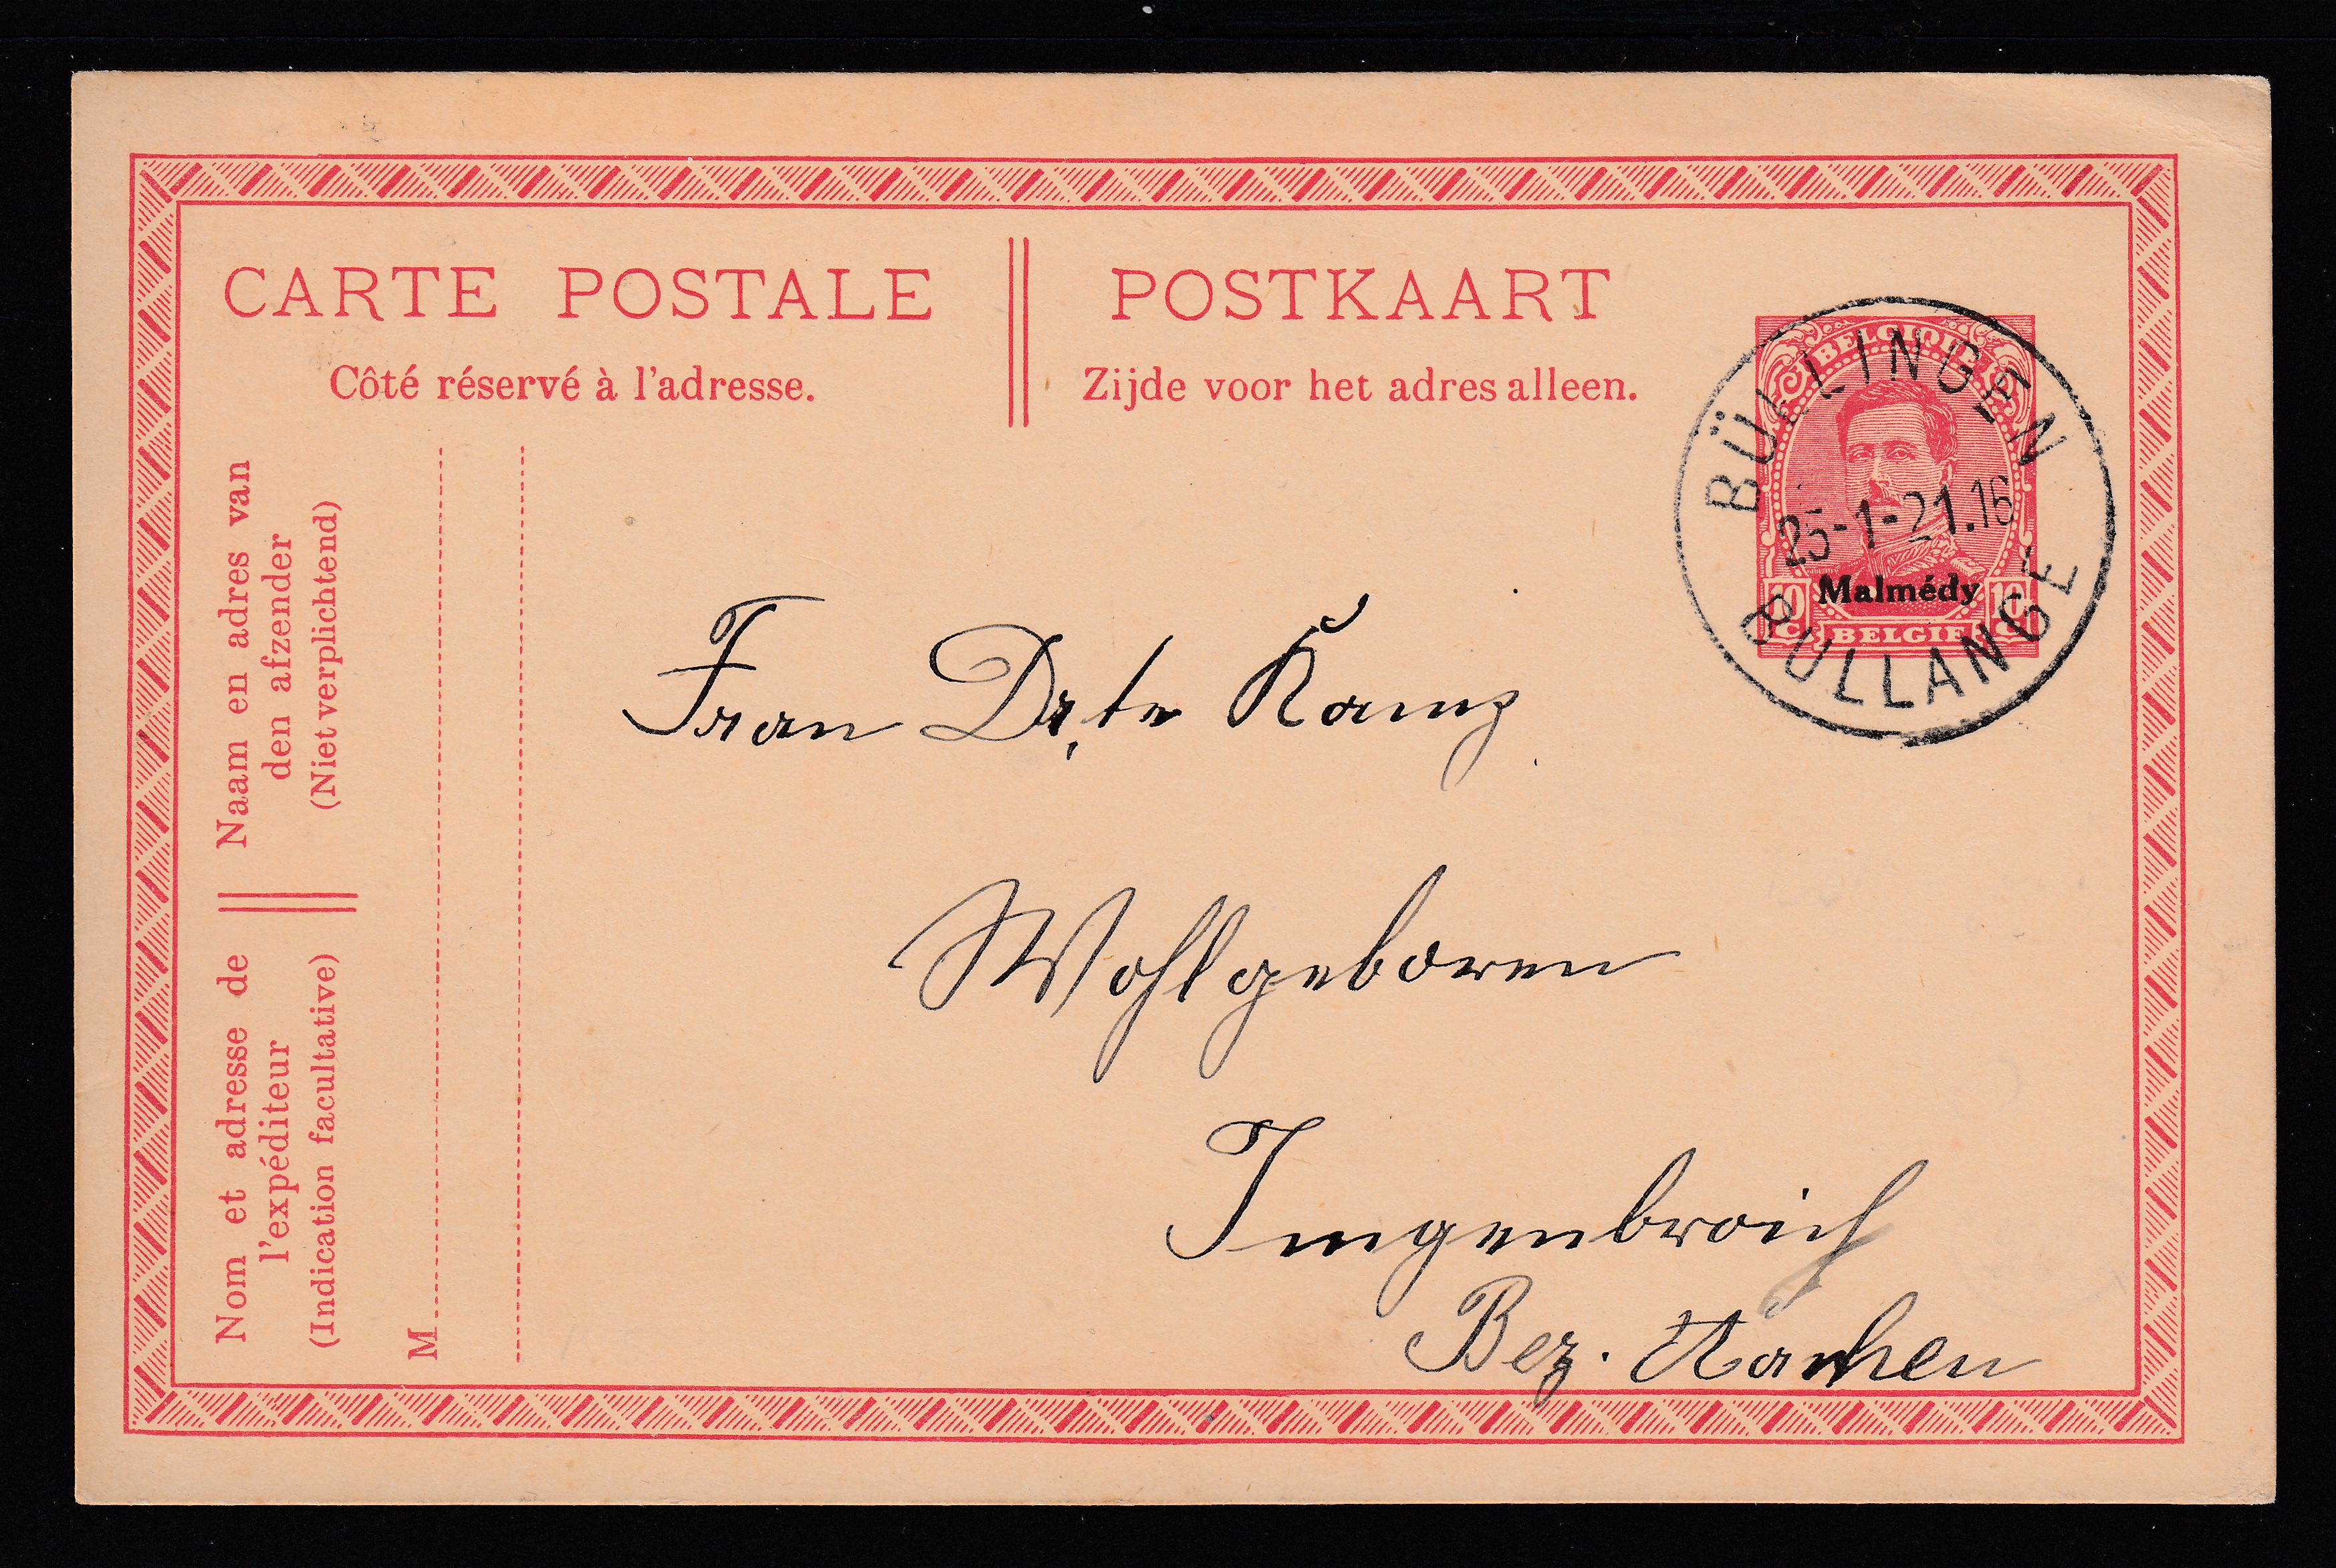 CARTE POSTALE
Côté réservé à l'adresse.
POSTKAART
Zijde voor het adres alleen.
BELGIQUE
BÜLLINGEN
25-1-21.16
BULLANGE
Malmédy
10 c 10 c
BELGIË
Naam en adres van
den afzender
(Niet verplichtend)
Nom et adresse de
l'expéditeur
(Indication facultative)
M
Frau
Wohlgeboren
Imgenbroich
Bez. Aachen